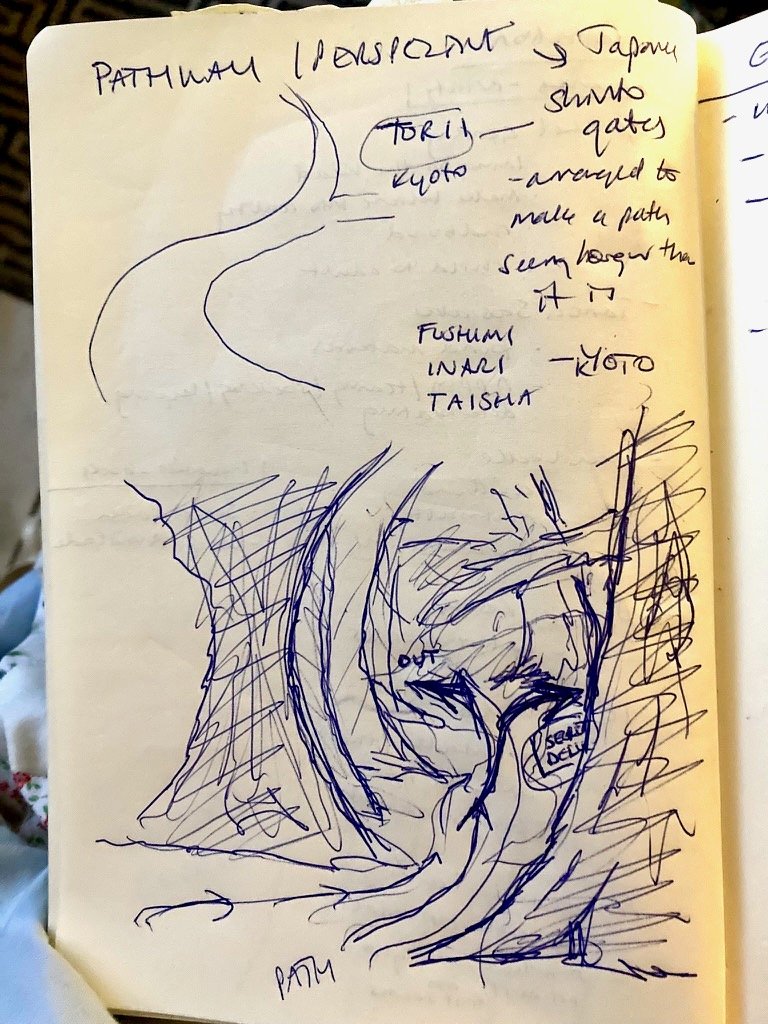 PATHWAY / PERSPECTIVE → Japan
Shinto
TORII — gates
Kyoto - arranged to
make a path
seem longer than
it is
FUSHIMI
INARI — KYOTO
TAISHA
OUT
SECRET
DELL
PATH